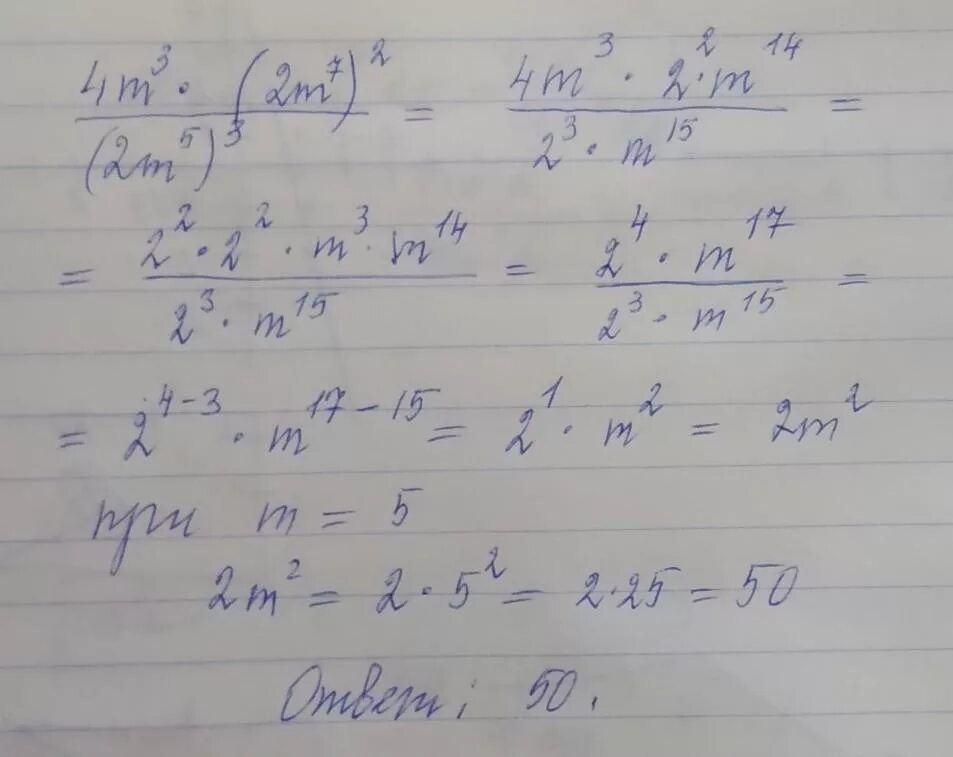 4m³ · (2m⁷)² / (2m⁵)³ = 4m³ · 2² · m¹⁴ / 2³ · m¹⁵ =
= 2² · 2² · m³ · m¹⁴ / 2³ · m¹⁵ = 2⁴ · m¹⁷ / 2³ · m¹⁵ =
= 2⁴⁻³ · m¹⁷⁻¹⁵ = 2¹ · m² = 2m²
при m = 5
2m² = 2 · 5² = 2 · 25 = 50
Ответ: 50.